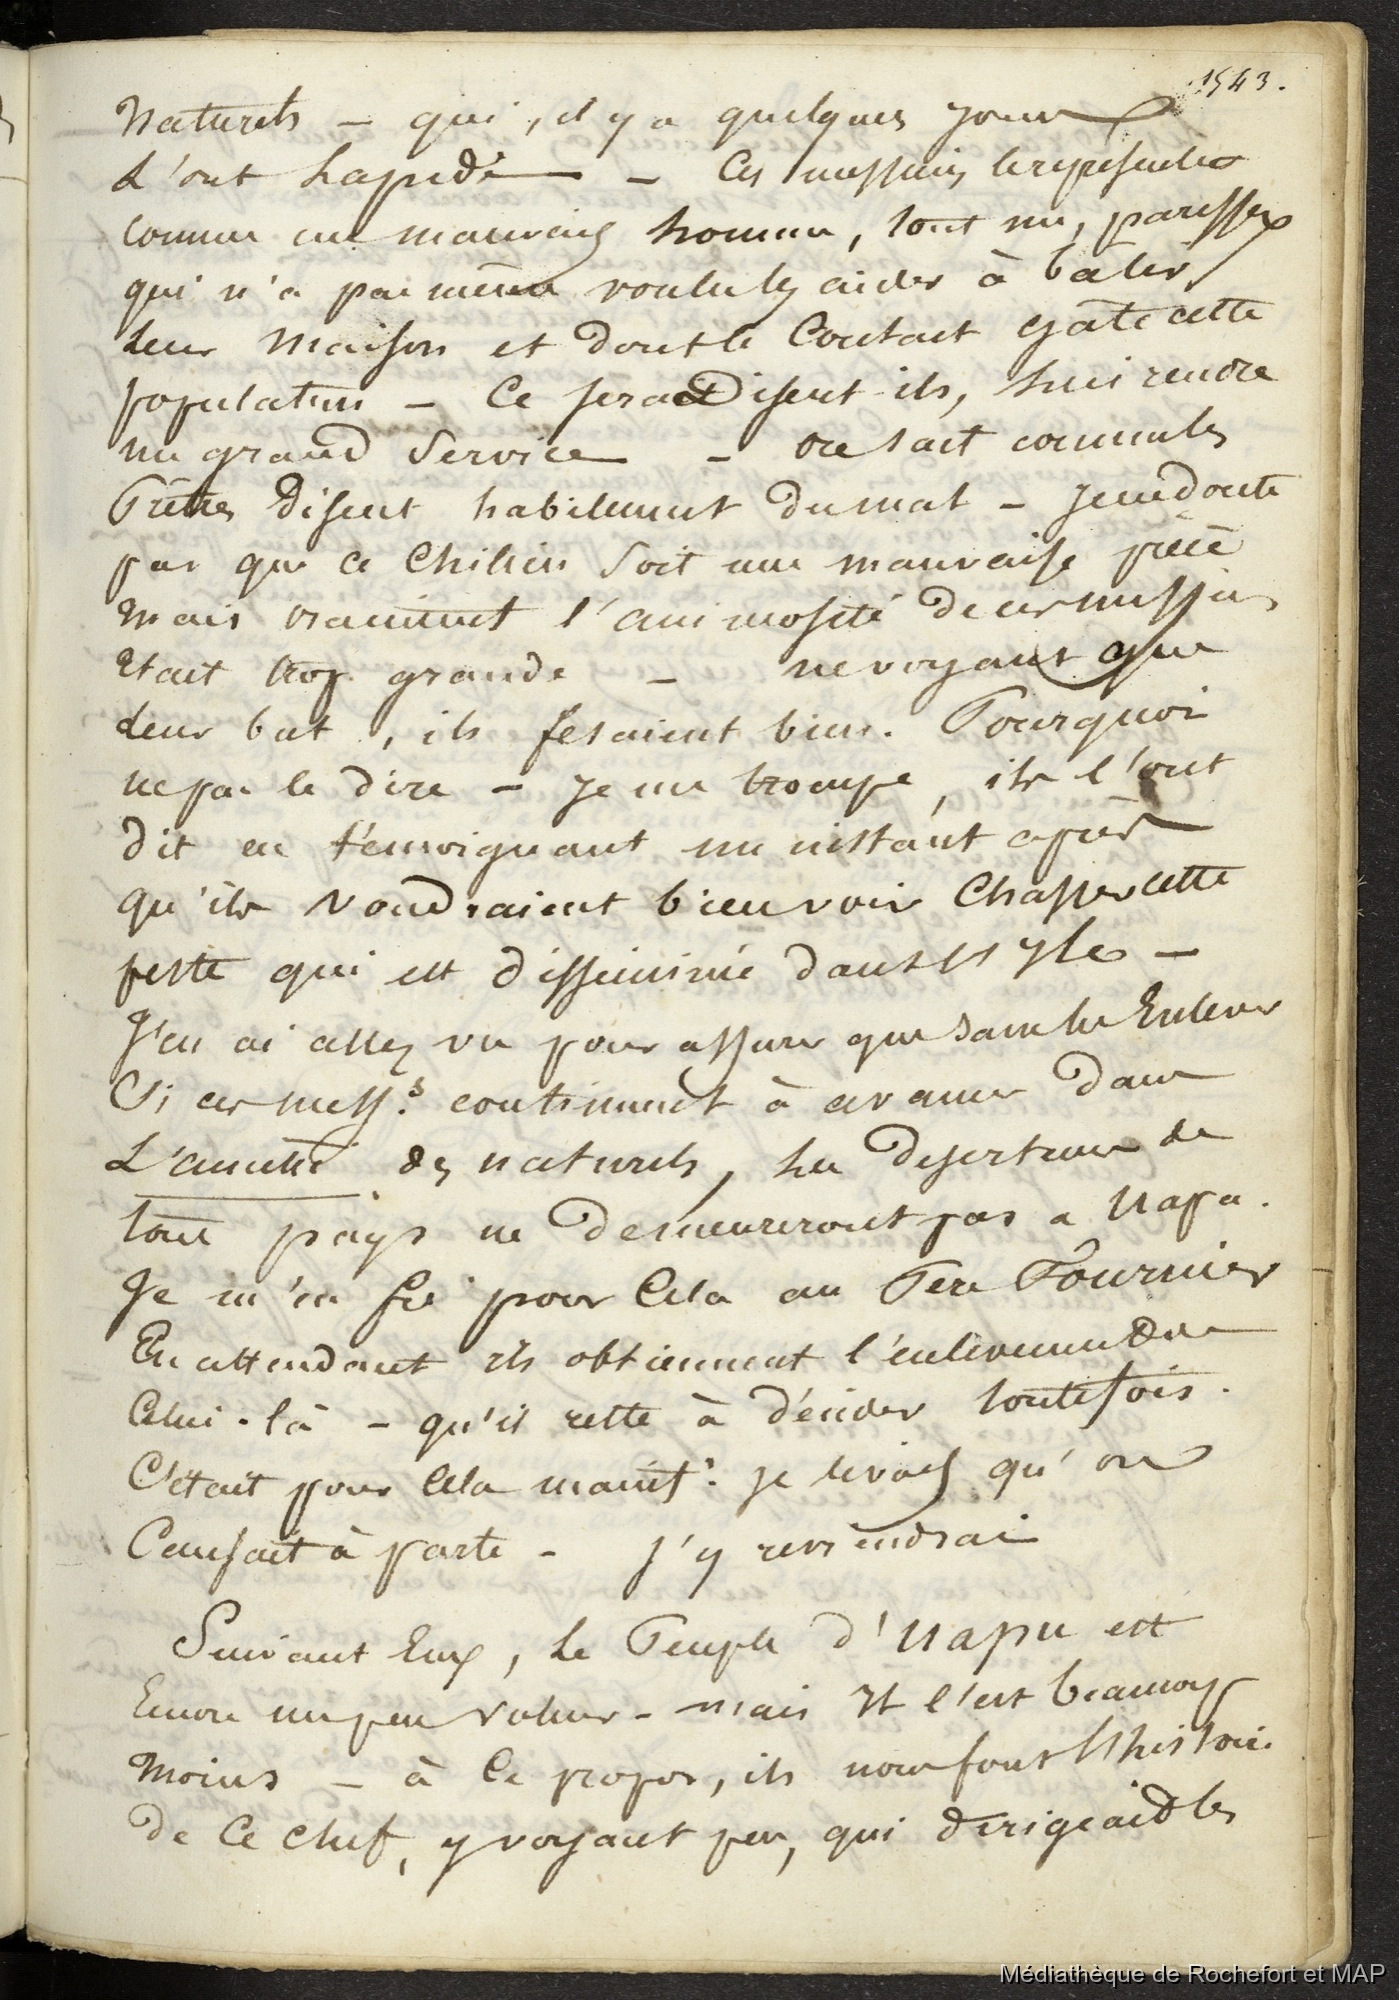 1543.
Naturels – qui, il y a quelques jours
L'ont Lapidé – Ces messieurs le représente
comme un mauvais homme, tout nu, paresseux
qui n'a pas même voulu les aider à bâtir
Leur Maison et dont le Contact gâte cette
population – Ce serait Disent-ils, Lui rendre
un grand Service – on sait comme les
Prêtres Disent habilement du mal – Je ne doute
pas que ce Chilien soit une mauvaise pièce
Mais vraiment l'animosité de ces messieurs
Etait trop grande – ne voyant que
Leur but, ils fesaient bien. Pourquoi
ne pas le dire – Je me trompe, ils l'ont
dit en témoignant un instant après
qu'ils voudraient bien voir Chasser cette
peste qui est disséminée dans les Yles –
J'en ai assez vu pour assurer que sans les Enlever
Si ces mess.s continuent à avancer dans
L'amitié des naturels, Les Deserteurs de
tous pays ne Demeureront pas a Uapu.
Je m'en fie pour Cela au Pere Fournier
En attendant ils obtiennent l'enlevement de
Celui-là – qu'il reste à décider toutefois.
C'était pour Cela maint.t je le vois qu'on
Causait à parte – J'y reviendrai
Suivant Eux, Le Peuple d'Uapu est
Encore un peu voleur – mais Il l'est beaucoup
Moins – à Ce propos, ils nous font l'histoire
de Ce chef, y voyant peu, qui dirigeait les
Médiathèque de Rochefort et MAP